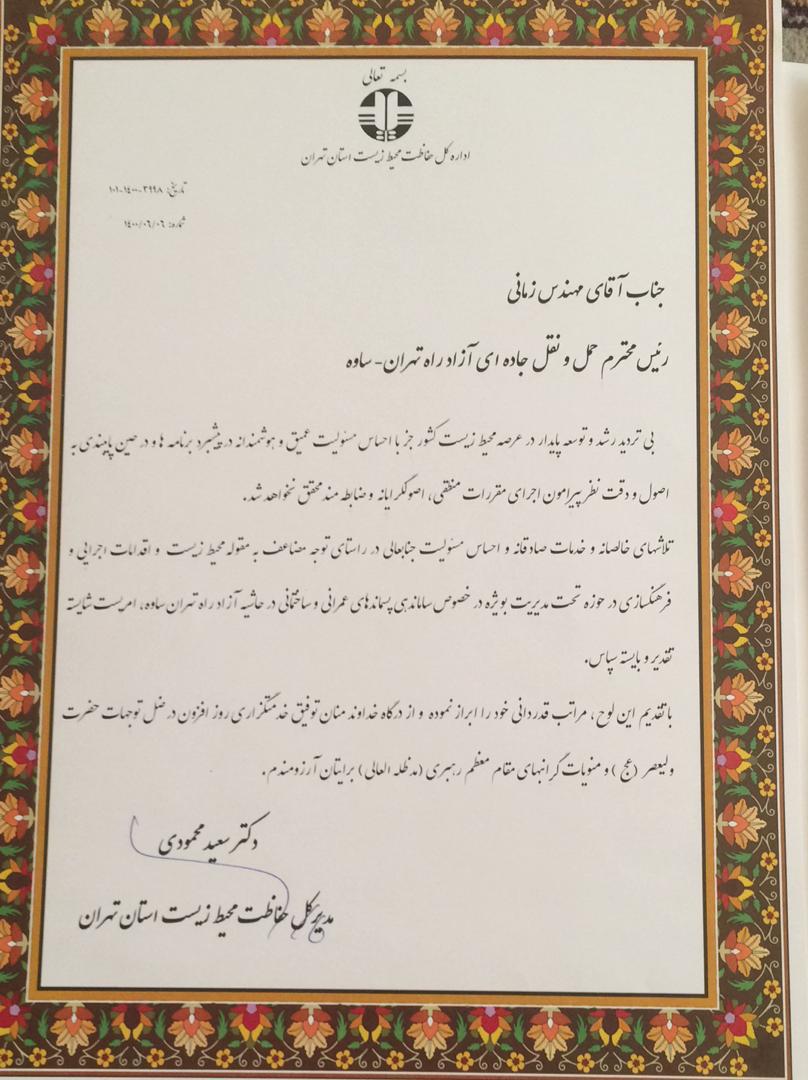 بسمه تعالی
اداره کل حفاظت محیط زیست استان تهران
تاریخ: ۱۰۱-۱۴۰۰-۳۹۹۸
شماره: ۱۴۰۰/۰۶/۰۶
جناب آقای مهندس زمانی
رئیس محترم حمل و نقل جاده ای آزاد راه تهران- ساوه
بی تردید رشد و توسعه پایدار در عرصه محیط زیست کشور جز با احساس مسئولیت عمیق و هوشمندانه در پیشبرد برنامه ها و در عین پایبندی به
اصول و دقت نظر پیرامون اجرای مقررات منفقی، اصولگرایانه و ضابطه مند محقق نخواهد شد.
تلاشهای خالصانه و خدمات صادقانه و احساس مسئولیت جنابعالی در راستای توجه مضاعف به مقوله محیط زیست و اقدامات اجرایی و
فرهنگسازی در حوزه تحت مدیریت بویژه در خصوص ساماندهی پسماندهای عمرانی و ساختمانی در حاشیه آزاد راه تهران ساوه، امریست شایسته
تقدیر و بایسته سپاس.
با تقدیم این لوح، مراتب قدردانی خود را ابراز نموده و از درگاه خداوند منان توفیق خدمتگزاری روز افزون در ضل توجهات حضرت
ولیعصر (عج) و منویات گرانبهای مقام معظم رهبری (مدظله العالی) برایتان آرزومندم.
دکتر سعید محمودی
مدیرکل حفاظت محیط زیست استان تهران